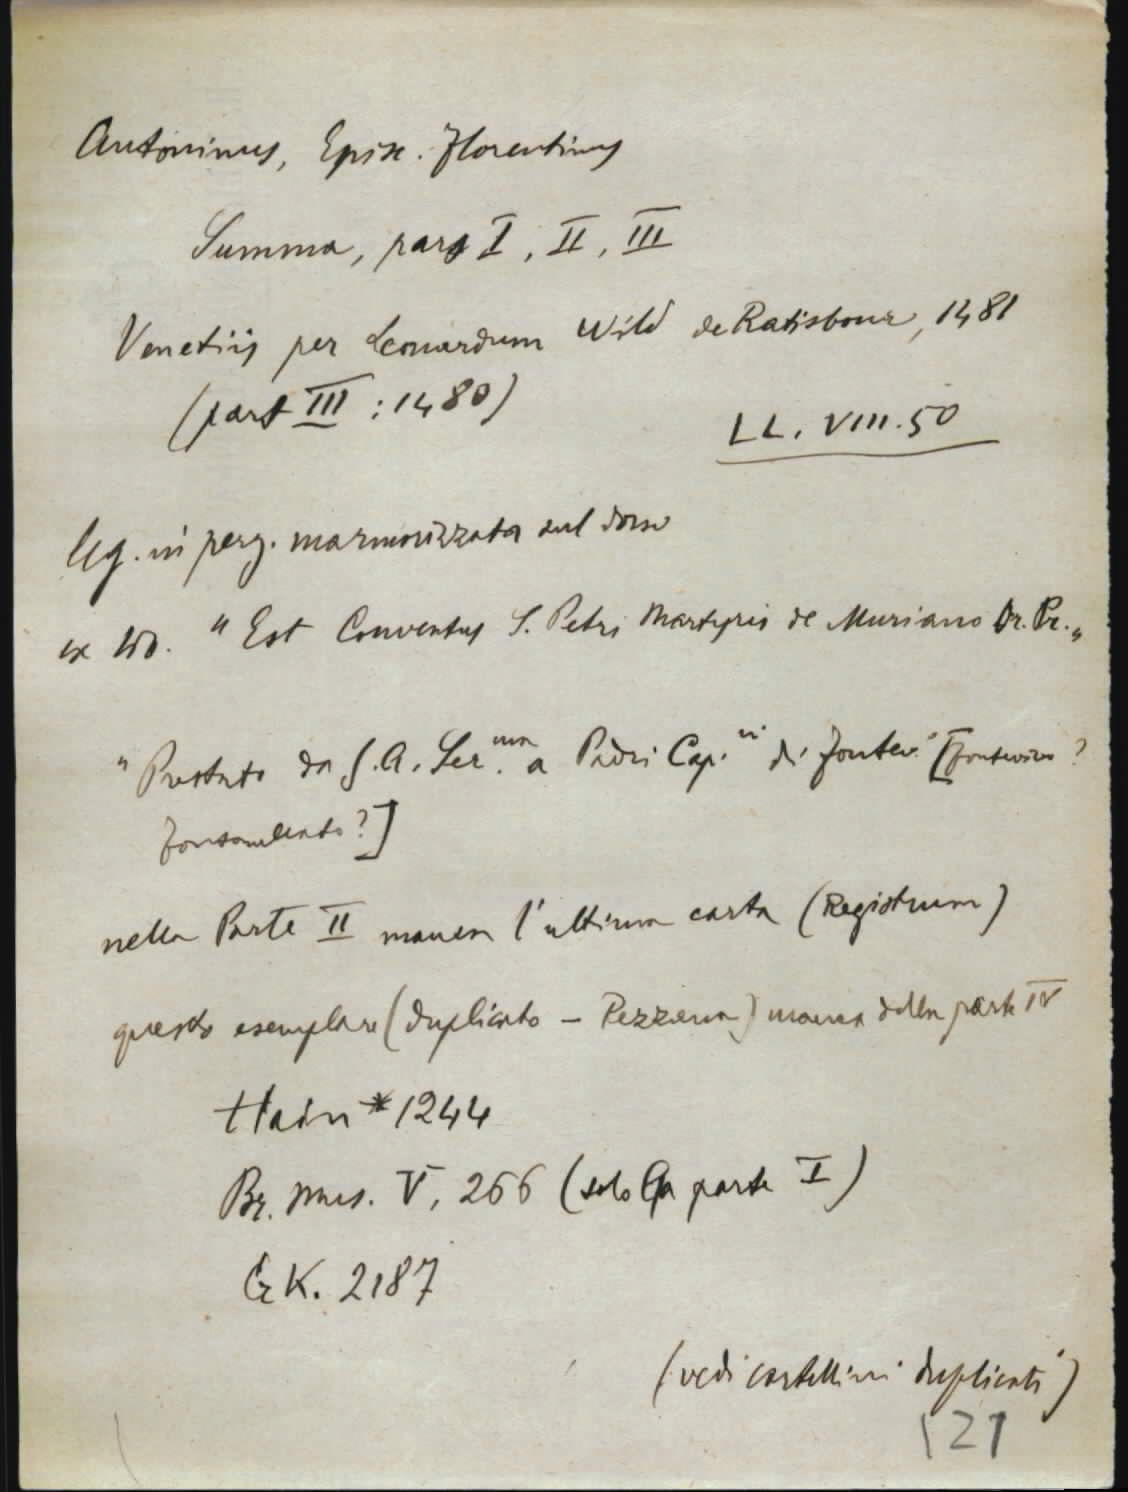 Antoninus, Episc. Florentinus
Summa, pars I, II, III
Venetiis per Leonardum Wild de Ratisbona, 1481
(pars III : 1480)
LL. VIII. 50
leg. in perg. marmorizzata sul dorso
ex lib. "Est Conventus S. Petri Martyris de Muriano Or. Pr."
"Prestato da S. A. Ser.ma a Padri Cap.ni di Fontev." [Fontevivo?
Fontanellato?]
nella Parte II manca l'ultima carta (Registrum)
questo esemplare (duplicato – Pezzana) manca della parte IV
Hain *1244
Br. Mus. V, 266 (solo la parte I)
GK. 2187
(vedi cartellini duplicati)
121